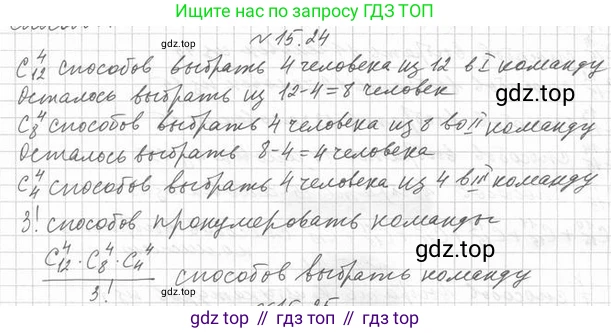 Ищите нас по запросу ГДЗ ТОП
№15.24
C₁₂⁴ способов выбрать 4 человека из 12 в I команду
Осталось выбрать из 12-4=8 человек
C₈⁴ способов выбрать 4 человека из 8 во II команду
Осталось выбрать 8-4=4 человека
C₄⁴ способов выбрать 4 человека из 4 в III команду
3! способов пронумеровать команды
C₁₂⁴ · C₈⁴ · C₄⁴
3!
способов выбрать команду
gdz.top
gdz.top
gdz.top
gdz.top
gdz.top
gdz.top // гдз топ // гдз.топ